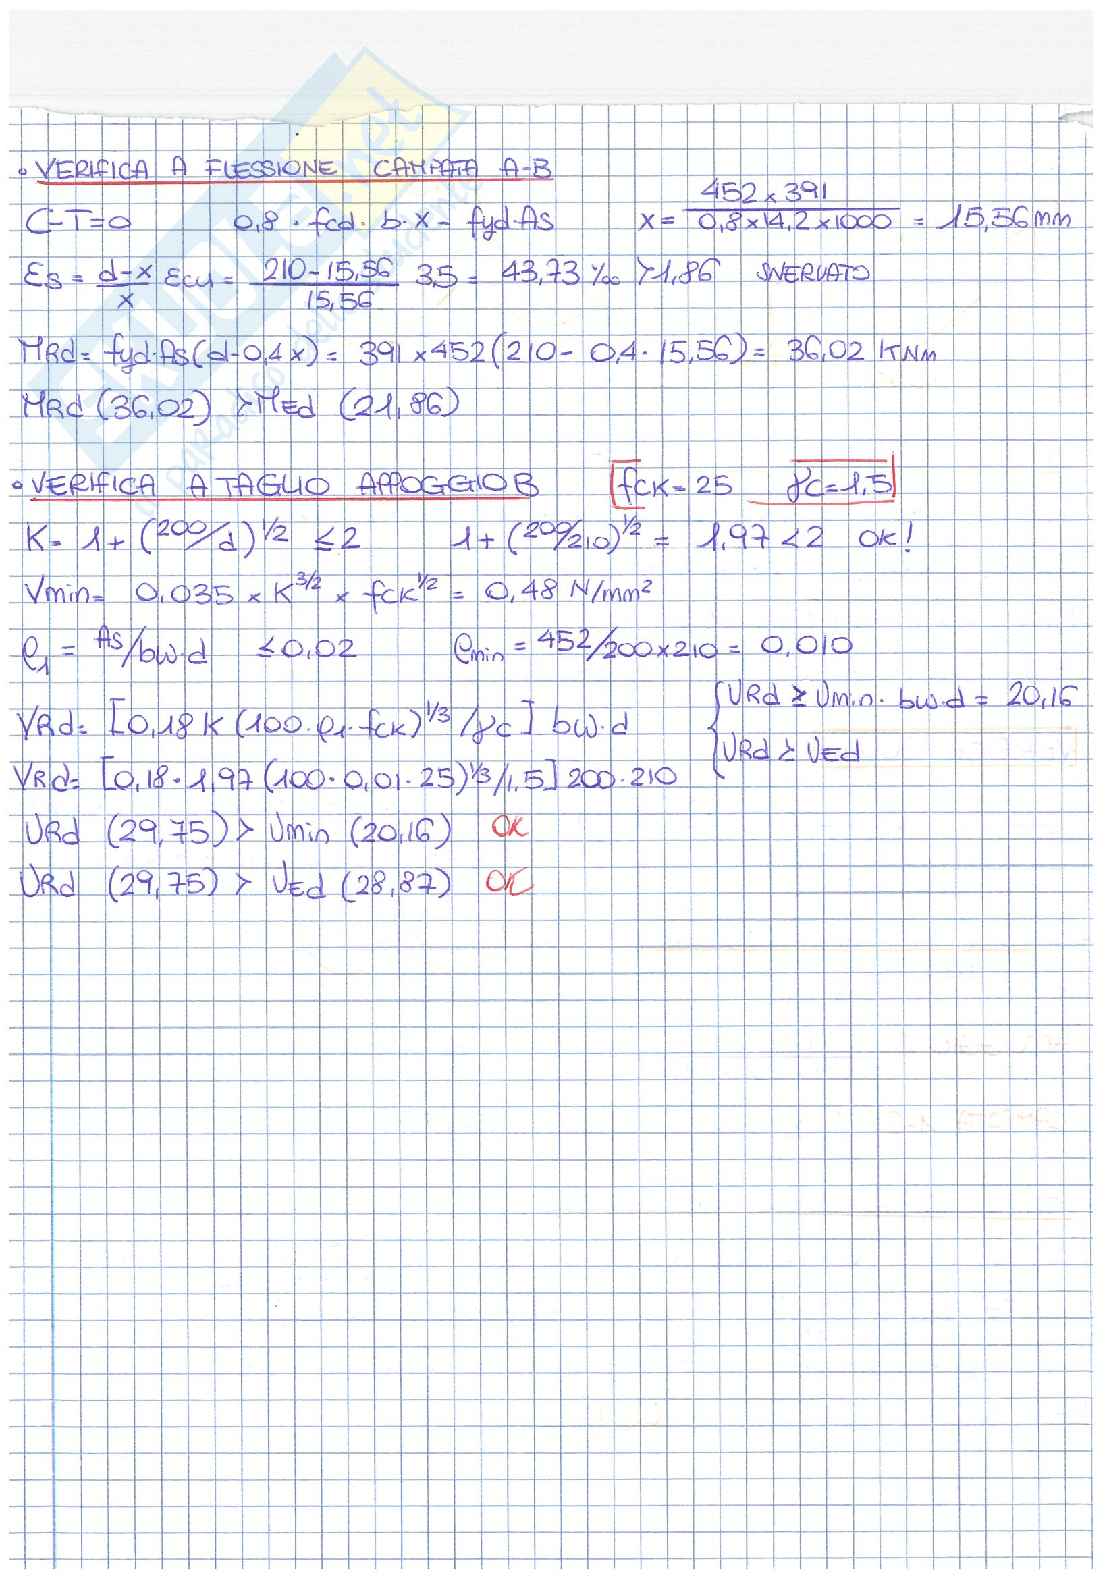 • VERIFICA A FLESSIONE CAMPATA A-B
C-T=0 0,8 · fcd · b · x - fyd·As x = 452 x 391 / 0,8 x 14,2 x 1000 = 15,56 mm
εs = d-x / x εcu = 210 - 15,56 / 15,56 3,5 = 43,73 ‰ > 1,86 SNERVATO
MRd = fyd·As (d-0,4x) = 391 x 452 (210 - 0,4 · 15,56) = 36,02 KNm
MRd (36,02) > MEd (21,86)
• VERIFICA A TAGLIO APPOGGIO B fck = 25 γc = 1,5
K = 1 + (200/d)^1/2 ≤ 2 1 + (200/210)^1/2 = 1,97 < 2 OK!
Vmin = 0,035 x K^3/2 x fck^1/2 = 0,48 N/mm²
ρ1 = As/bw·d ≤ 0,02 ρmin = 452/200x210 = 0,010
VRd = [0,18 K (100·ρ1·fck)^1/3 / γc] bw·d { VRd ≥ Vmin · bw·d = 20,16
VRd ≥ VEd
VRd = [0,18 · 1,97 (100 · 0,01 · 25)^1/3 / 1,5] 200 · 210
VRd (29,75) > Vmin (20,16) OK
VRd (29,75) > VEd (28,87) OK